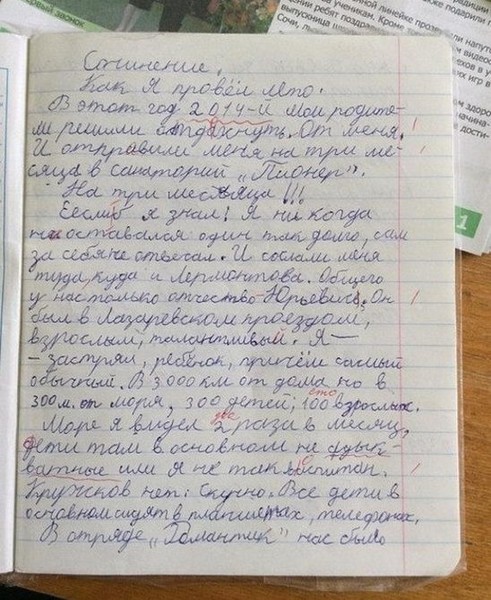 Сочинение.
Как я провёл лето.
В этот год 2014-й мои родите-
ли решили отдохнуть. От меня.
И отправили меня на три ме-
сяца в санаторий „Пионер".
На три месяца !!!
Если б я знал! Я ни когда
не оставался один так долго, сам
за себя не отвечал. И сослали меня
туда, куда и Лермонтова. Общего
у нас только отчество - Юрьевич. Он
был в Лазаревском проездом,
взрослый, талантливый. Я —
- застрял, ребёнок, причём самый
обычный. В 3000 км от дома но в
300м. от моря, 300 детей, 100 взрослых.
сто
Море я видел 2 раза в месяц,
два
дети там в основном не адык-
ватные или я не так воспитан.
Кружков нет. Скучно. Все дети в
основном сидят в планшетах, телефонах.
В отряде „Романтик" нас было
1